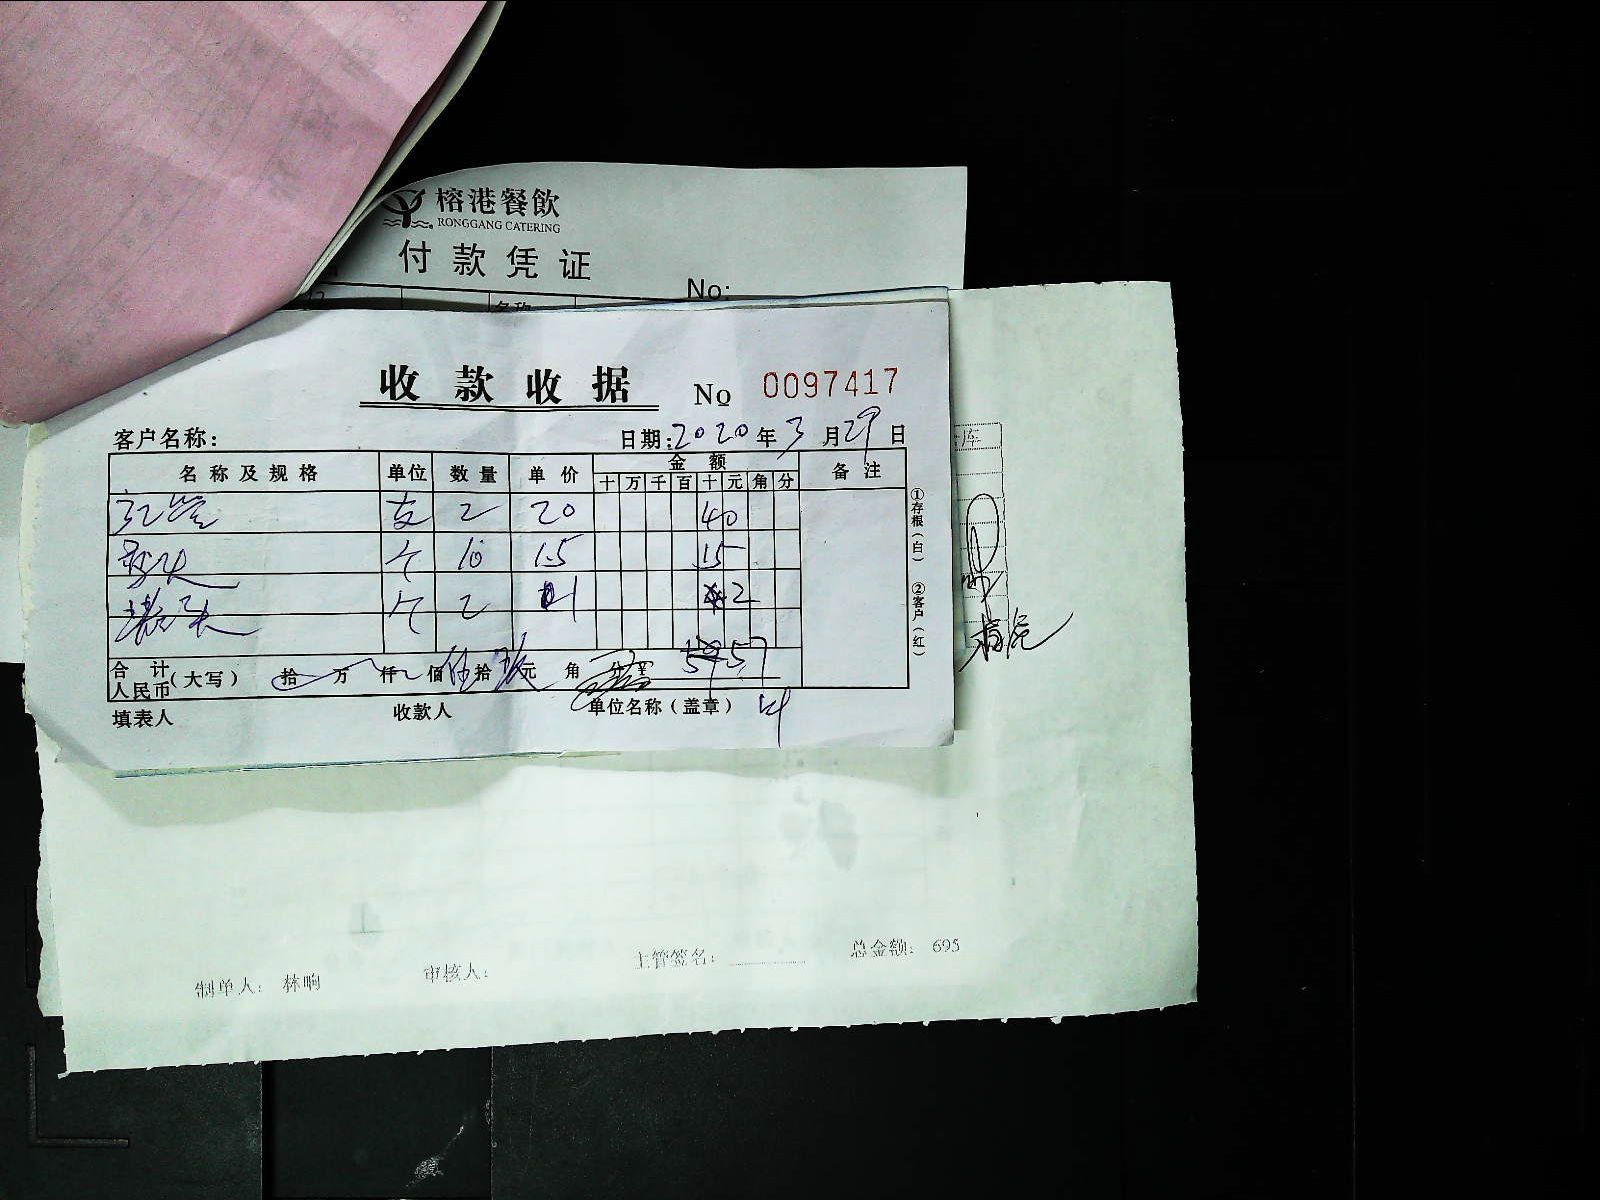 榕港餐飲
RONGGANG CATERING
付款凭证
No:
名称
收款收据 No 0097417
客户名称: 日期: 2020 年 3 月 29 日
名称及规格 单位 数量 单价 金额 备注
十 万 千 百 十 元 角 分
支 2 20 40
个 10 1.5 15
个 2 1 2
合计人民币(大写) 拾 万 仟 佰 伍 拾 玖 元 角 分 ¥ 57
填表人 收款人 单位名称(盖章)
①存根(白) ②客户(红)
库
制单人: 林响 审核人: 主管签名: 总金额: 695